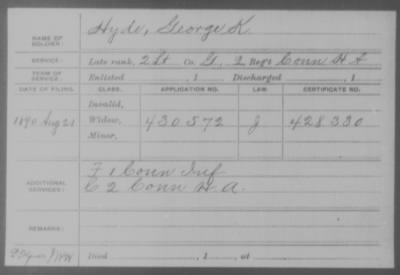 NAME OF SOLDIER: Hyde, George K.
SERVICE: Late rank, 2 Lt Co. G, 2 Reg't Conn H A
TERM OF SERVICE: Enlisted , 1 Discharged , 1
DATE OF FILING. CLASS. APPLICATION NO. LAW. CERTIFICATE NO.
Invalid,
1890 Aug 21 Widow, 430572 J 428330
Minor,
ADDITIONAL SERVICES: F 1 Conn Inf
C 2 Conn H.A.
REMARKS:
Died , 1 , at